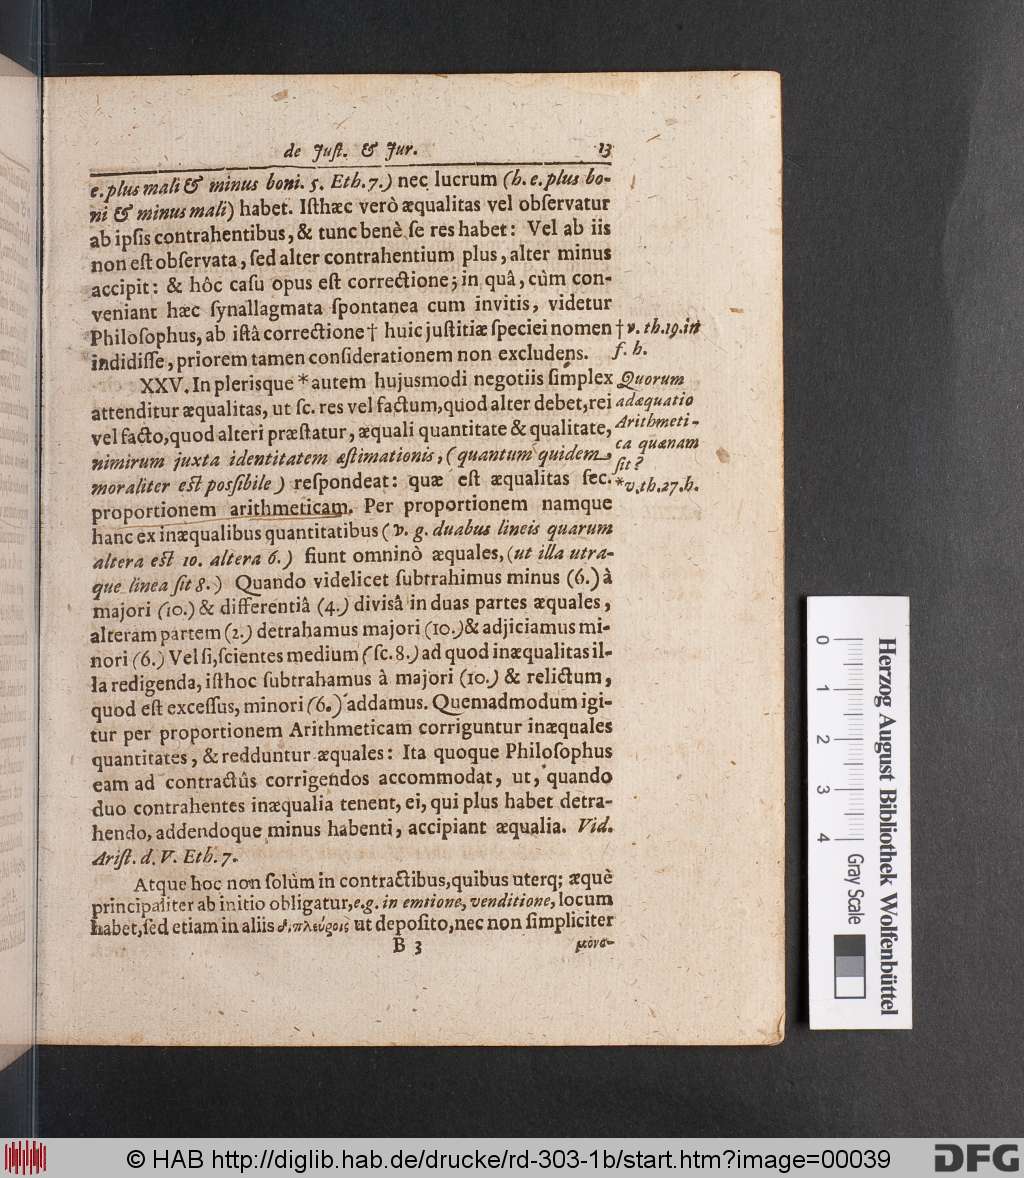 de Juſt. & Jur. 13
e. plus mali & minus boni. 5. Eth. 7.) nec lucrum (h. e. plus bo-
ni & minus mali) habet. Iſthæc verò æqualitas vel obſervatur
ab ipſis contrahentibus, & tunc benè ſe res habet: Vel ab iis
non eſt obſervata, ſed alter contrahentium plus, alter minus
accipit: & hôc caſu opus eſt correctione; in quâ, cùm con-
veniant hæc ſynallagmata ſpontanea cum invitis, videtur
Philoſophus, ab iſtâ correctione † huic juſtitiæ ſpeciei nomen
indidiſſe, priorem tamen conſiderationem non excludens.
† v. th. 19. in
f. h.
XXV. In plerisque * autem hujusmodi negotiis ſimplex
attenditur æqualitas, ut ſc. res vel factum, quod alter debet, rei
vel facto, quod alteri præſtatur, æquali quantitate & qualitate,
nimirum juxta identitatem æſtimationis, (quantum quidem
moraliter est poſſibile) reſpondeat: quæ eſt æqualitas ſec.
proportionem arithmeticam. Per proportionem namque
hanc ex inæqualibus quantitatibus (v. g. duabus lineis quarum
altera est 10. altera 6.) fiunt omninò æquales, (ut illa utra-
que linea ſit 8.) Quando videlicet ſubtrahimus minus (6.) à
majori (10.) & differentiâ (4.) diviſâ in duas partes æquales,
alteram partem (2.) detrahamus majori (10.) & adjiciamus mi-
nori (6.) Vel ſi, ſcientes medium (ſc. 8.) ad quod inæqualitas il-
la redigenda, iſthoc ſubtrahamus à majori (10.) & relictum,
quod eſt exceſſus, minori (6.) addamus. Quemadmodum igi-
tur per proportionem Arithmeticam corriguntur inæquales
quantitates, & redduntur æquales: Ita quoque Philoſophus
eam ad contractûs corrigendos accommodat, ut, quando
duo contrahentes inæqualia tenent, ei, qui plus habet detra-
hendo, addendoque minus habenti, accipiant æqualia. Vid.
Ariſt. d. V. Eth. 7.
Quorum
adæquatio
Arithmeti-
ca quænam
ſit?
* v. th. 27. h.
Atque hoc non ſolùm in contractibus, quibus uterq; æquè
principaliter ab initio obligatur, e. g. in emtione, venditione, locum
habet, ſed etiam in aliis δ.πλεύροις ut depoſito, nec non ſimpliciter
B 3 μόνο-
0 1 2 3 4
Gray Scale
Herzog August Bibliothek Wolfenbüttel
© HAB http://diglib.hab.de/drucke/rd-303-1b/start.htm?image=00039
DFG